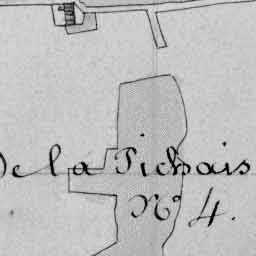 De la Pichais
N° 4.